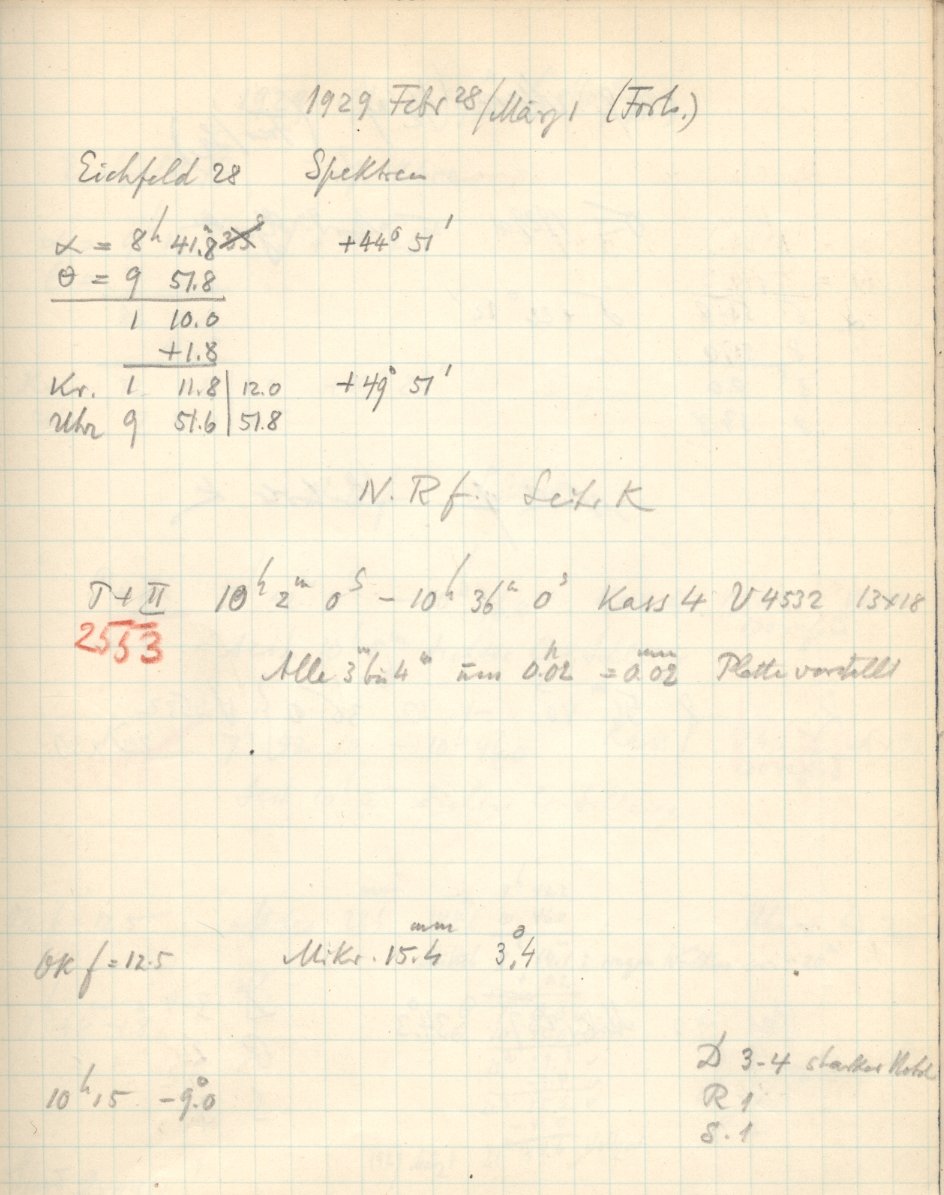 1929 Febr 28/März 1 (Forts.)
Eichfeld 28 Spektren
α = 8h 41.8 +44° 51'
θ = 9 51.8
1 10.0
+1.8
Kr. 1 11.8 | 12.0 +49° 51'
Uhr 9 51.6 | 51.8
N. R f. Leitr. K
I + II 10h 2m 0s – 10h 36m 0s Kass 4 V 4532 13x18
2553
Alle 3m bis 4m um 0.02 = 0.02mm Platte verstellt
OK f = 12.5 Mikr. 15.4mm 3.°4
D 3-4 starker
10h 15 -9.°0 R 1
S. 1